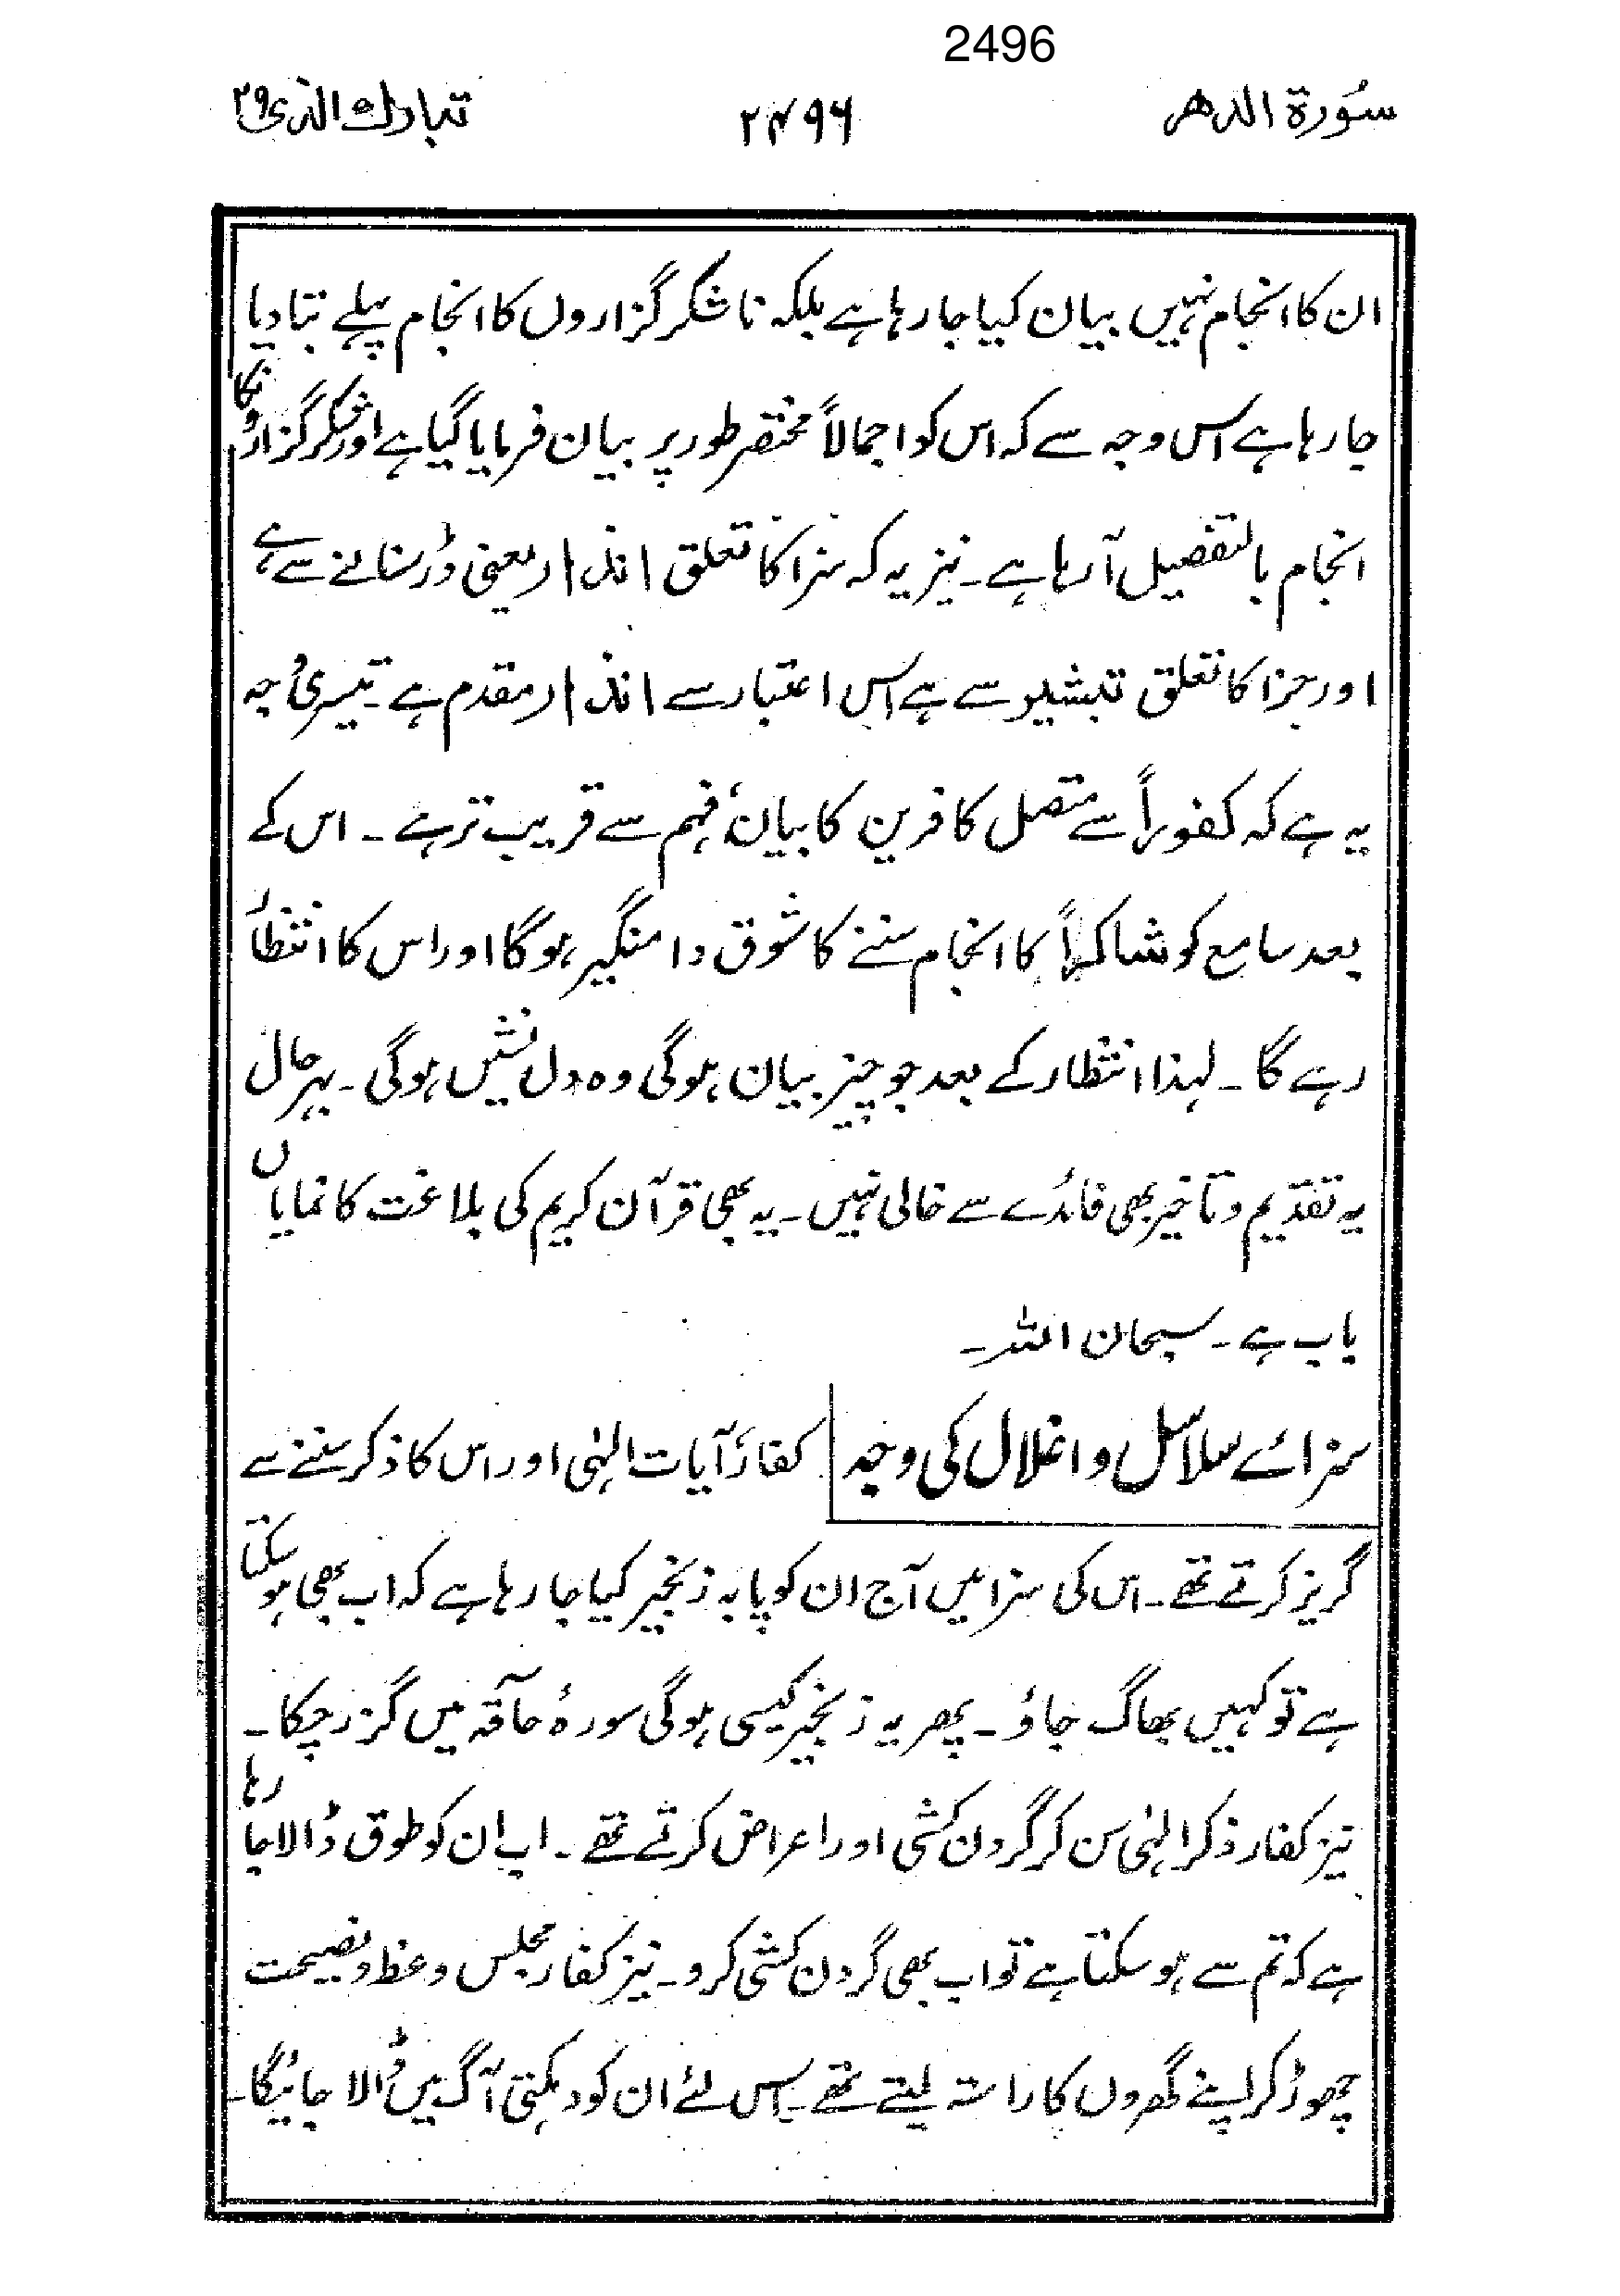 2496
سُورة الدهر ۲۴۹۶ تبارك الذی ۲۹
ان کا انجام نہیں بیان کیا جا رہا ہے بلکہ ناشکر گزاروں کا انجام پہلے بتا دیا
جا رہا ہے اس وجہ سے کہ اس کو اجمالاً مختصر طور پر بیان فرمایا گیا ہے اور شکر گزاروں کا
انجام بالتفصیل آ رہا ہے۔ نیز یہ کہ سزا کا تعلق انذار یعنی ڈر سنانے سے ہے
اور جزا کا تعلق تبشیر سے ہے اس اعتبار سے انذار مقدم ہے۔ تیسری وجہ
یہ ہے کہ کفوراً سے متصل کافرین کا بیان، فہم سے قریب تر ہے۔ اس کے
بعد سامع کو شاکراً کا انجام سننے کا شوق دامنگیر ہوگا اور اس کا انتظار
رہے گا۔ لہذا انتظار کے بعد جو چیز بیان ہوگی وہ دل نشیں ہوگی۔ بہر حال
یہ تقدیم و تاخیر بھی فائدے سے خالی نہیں۔ یہ بھی قرآن کریم کی بلاغت کا نمایاں
باب ہے۔ سبحان اللہ۔
سزائے سلاسل و اغلال کی وجہ کفار، آیات الہٰی اور اس کا ذکر سننے سے
گریز کرتے تھے۔ اس کی سزا میں آج ان کو پا بہ زنجیر کیا جا رہا ہے کہ اب بھی ہو سکتا
ہے تو کہیں بھاگ جاؤ۔ پھر یہ زنجیر کیسی ہوگی سورۂ حآقہ میں گزر چکا۔
نیز کفار ذکر الہٰی سن کر گردن کشی اور اعراض کرتے تھے۔ اب ان کو طوق ڈالا جا رہا
ہے کہ تم سے ہو سکتا ہے تو اب بھی گردن کشی کرو۔ نیز کفار مجلس وعظ و نصیحت
چھوڑ کر اپنے گھروں کا راستہ لیتے تھے۔ اس لئے ان کو دہکتی آگ میں ڈالا جائیگا۔